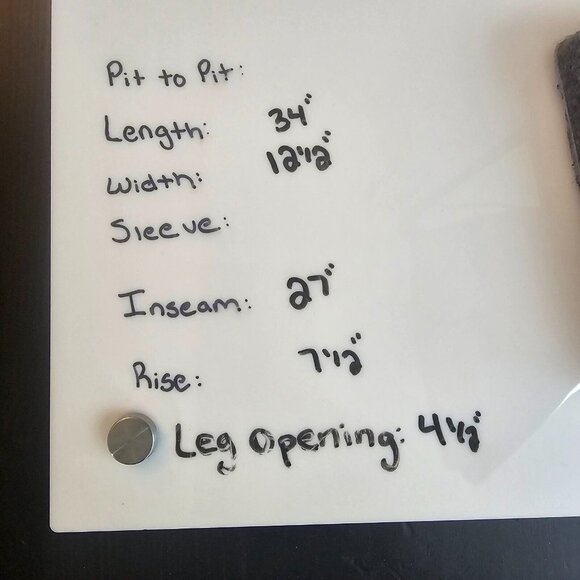 Pit to Pit:
Length: 34"
Width: 12 1/2"
Sleeve:
Inseam: 27"
Rise: 7 1/2"
Leg Opening: 4 1/2"